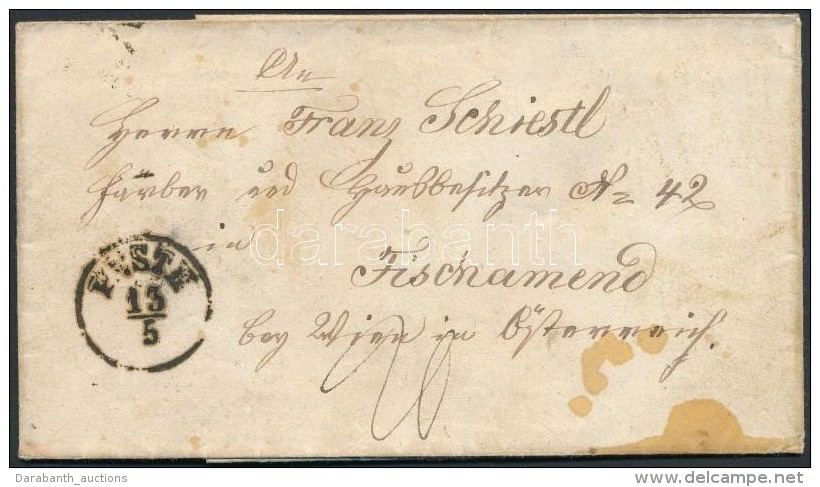 An
Herrn Franz Schiestl
Färber und Hausbesitzer No 42
in
Fischamend
bey Wien in Österreich.
PESTH
13
5
darabanth
Darabanth_auctions
delcampe.net